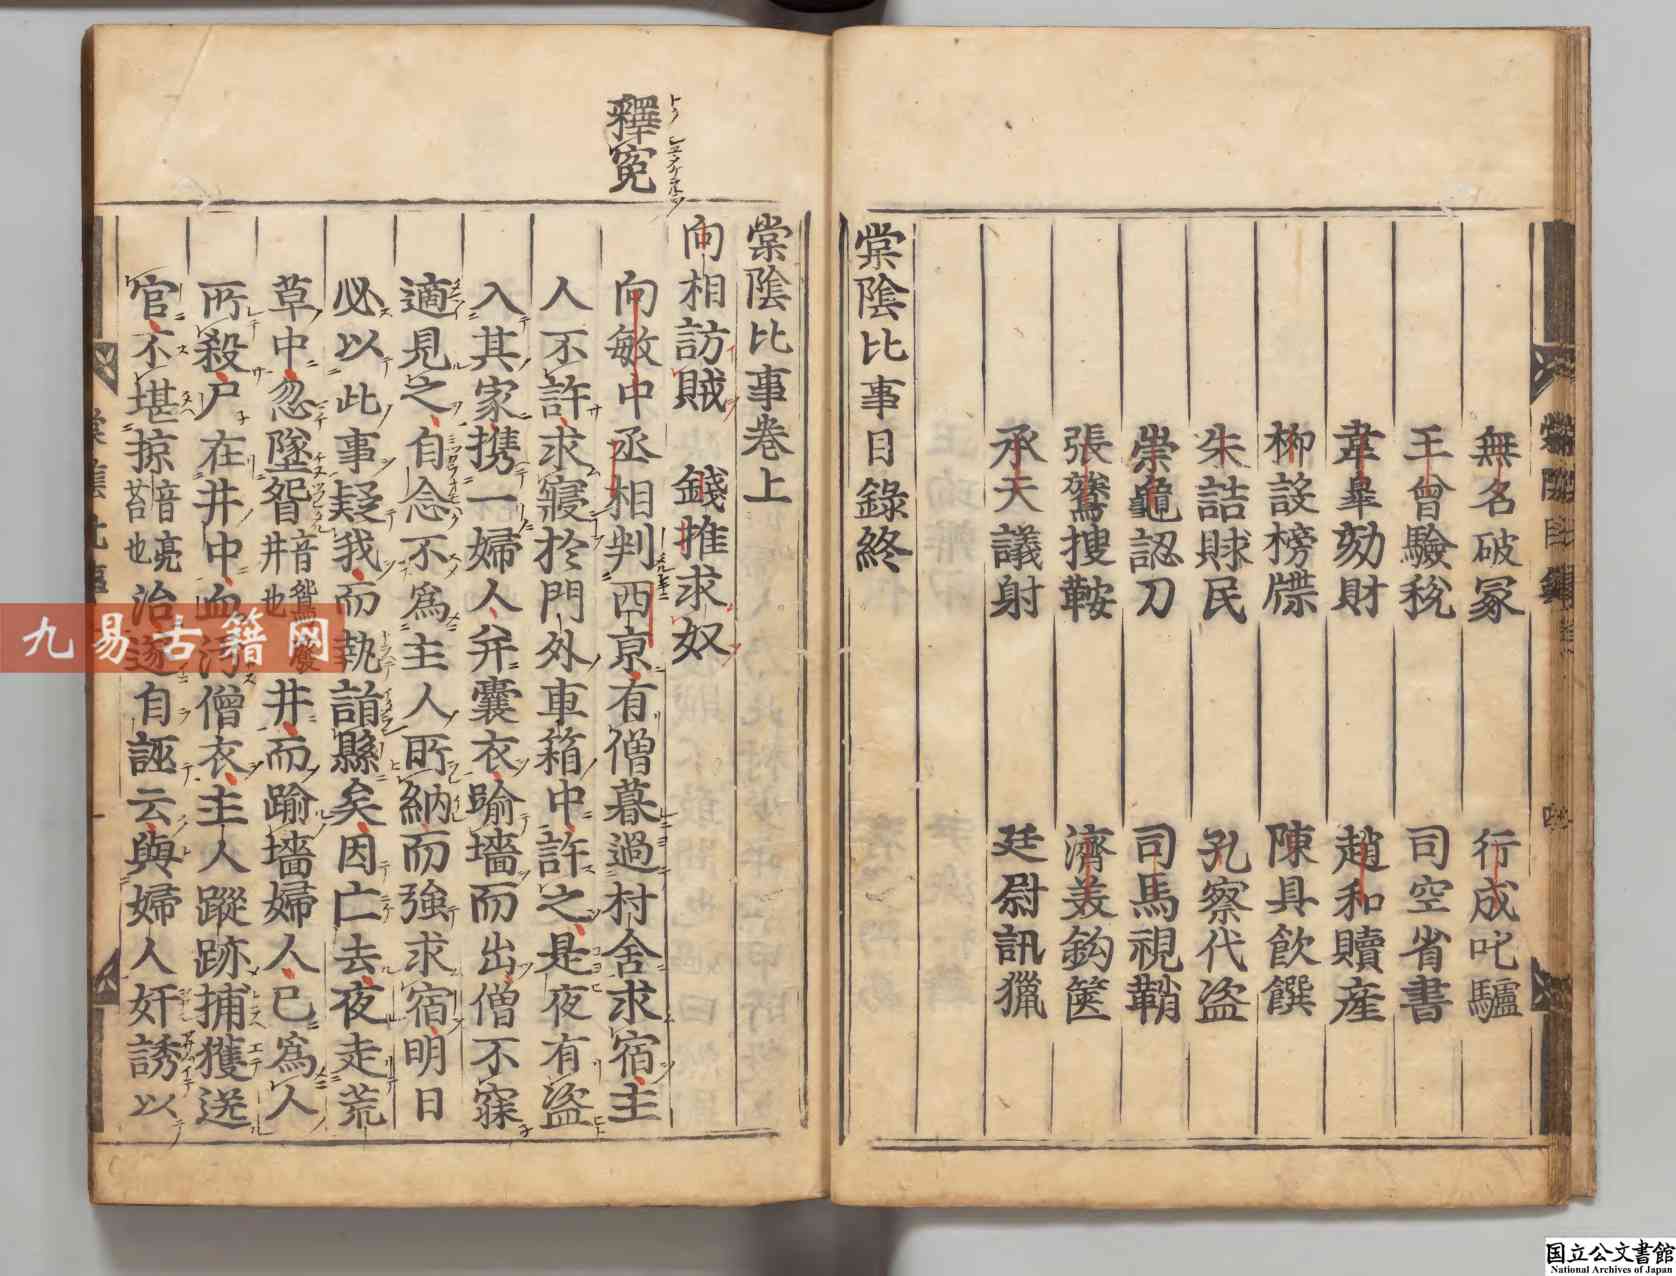 無名破冢　行成叱驢
王曾驗稅　司空省書
韋皐劾財　趙和贖産
柳設榜牒　陳具飲饌
朱詰賕民　孔察代盗
崇龜認刀　司馬視鞘
張鷟搜鞍　濟美鈎篋
承天議射　廷尉訊獵
棠陰比事目錄終
棠陰比事卷上
向相訪賊　錢推求奴
釋冤
向敏中丞相判西京有僧暮過村舍求宿主
人不許求寢於門外車箱中許之是夜有盗
入其家携一婦人并囊衣踰墻而出僧不寐
適見之自念不爲主人所納而強求宿明日
必以此事疑我而執詣縣矣因亡去夜走荒
草中忽墜眢音鴛廢井也井而踰墻婦人已爲人
所殺尸在井中血汚僧衣主人蹤跡捕獲送
官不堪掠音亮笞也治遂自誣云與婦人奸誘以
九易古籍网
国立公文書館
National Archives of Japan